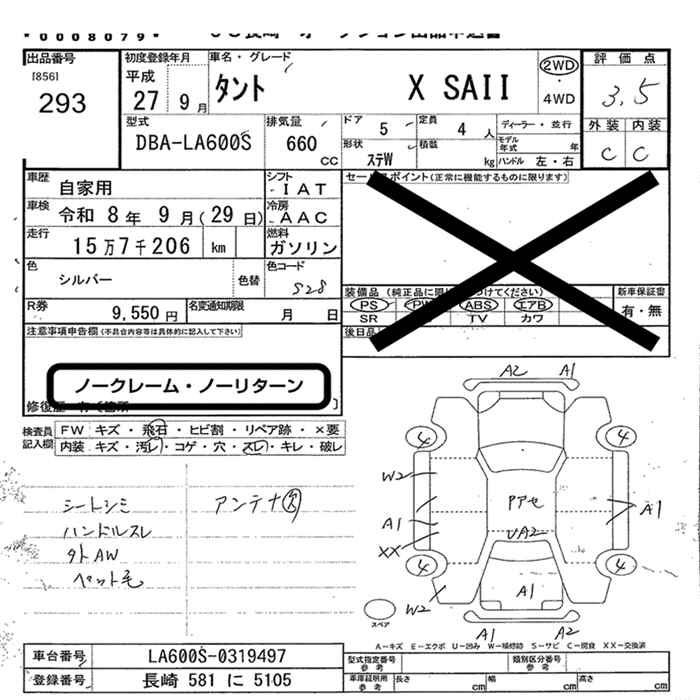 *0008079*
出品番号
[856]
293
初度登録年月
平成
27 9月
車名・グレード
タント X SAII
2WD
・
4WD
評価点
3.5
外装 内装
C C
型式
DBA-LA600S
排気量
660
CC
ドア
5
定員
4 人
形状
ステW
積載
kg
ディーラー・並行
モデル年式 年
ハンドル 左・右
車歴
自家用
シフト
IAT
車検
令和 8年 9月(29日)
冷房
AAC
走行
15万7千206 km
燃料
ガソリン
色
シルバー
色替
色コード
S28
R券
9,550円
名変通知期限
月 日
セールスポイント(正常に機能するものに限ります)
装備品
PS PW ABS エアB
SR TV カワ
新車保証書
有・無
後日品
注意事項申告欄(不具合内容等は具体的に記入して下さい)
ノークレーム・ノーリターン
検査員記入欄
FW キズ・飛石・ヒビ割・リペア跡・×要
内装 キズ・汚レ・コゲ・穴・スレ・キレ・破レ
シートシミ
ハンドルスレ
タトAW
ペット毛
アンテナ欠
A2 A1
4 4
W2
A1
XX
W2
Pアセ
UA2
A1
A1
4 4
A1 A2
スペア
A-キズ E-エクボ U-凹み W-補修跡 S-サビ C-腐食 XX-交換済
車台番号
LA600S-0319497
登録番号
長崎 581 に 5105
型式指定番号
参考
類別区分番号
参考
車庫証明用
参考
長さ cm
幅 cm
高さ cm